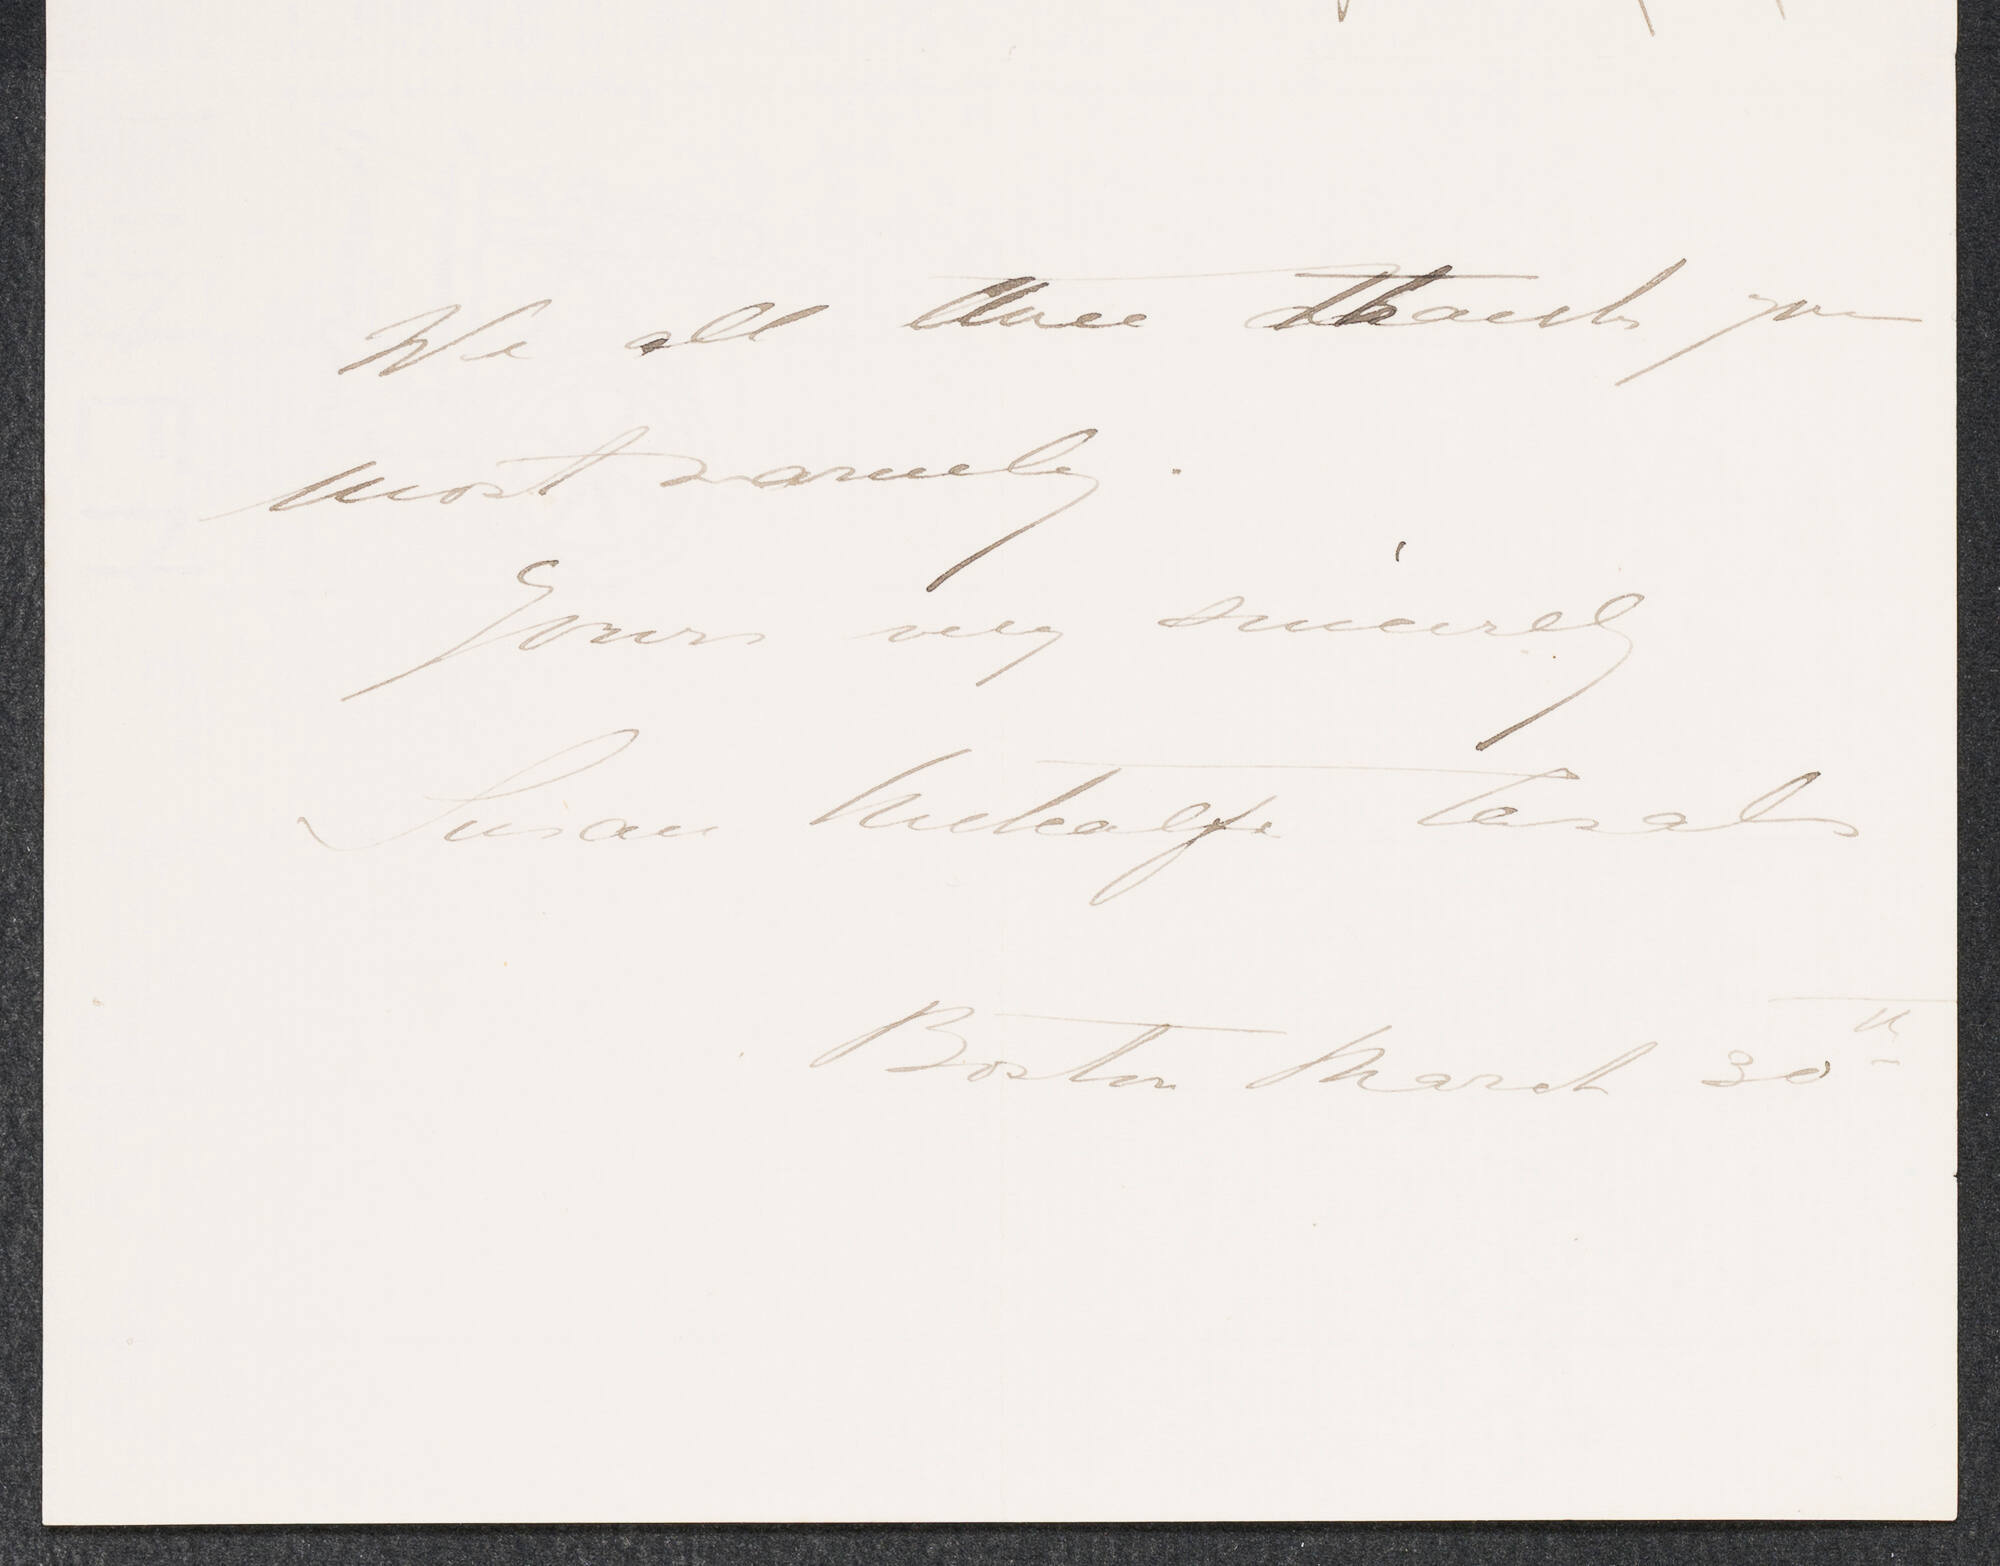 We all three thank you
most warmly.
Yours very sincerely
Susan Metcalfe Casals
Boston March 30th